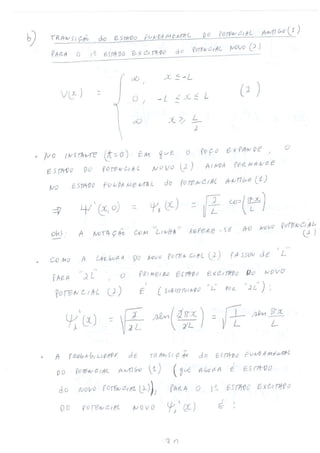 b) TRANSIÇÃO do ESTADO FUNDAMENTAL DO POTENCIAL ANTIGO (1)
PARA O 1º ESTADO EXCITADO do POTENCIAL NOVO (2)
V(x) = { ∞, x ≤ -L
0, -L ≤ x ≤ L (2)
∞ x ≥ L/2
• NO INSTANTE (t=0) EM QUE O POÇO EXPANDE, O
ESTADO DO POTENCIAL NOVO (2) AINDA PERMANECE
NO ESTADO FUNDAMENTAL do POTENCIAL ANTIGO (1)
⇒ ψ'(x,0) = ψ₁(x) = √(2/L) cos(πx/L)
obs: A NOTAÇÃO COM "LINHA" REFERE-SE AO NOVO POTENCIAL (2)
• COMO A LARGURA DO NOVO POTENCIAL (2) PASSOU DE "L"
PARA "2L", O PRIMEIRO ESTADO EXCITADO DO NOVO
POTENCIAL (2) É (SUBSTITUINDO "L" POR "2L"):
ψ₂'(x) = √(2/2L) sen(2πx/2L) = √(1/L) sen πx/L
• A PROBABILIDADE DE TRANSIÇÃO do ESTADO FUNDAMENTAL
DO POTENCIAL ANTIGO (1) (que AGORA É ESTADO
do NOVO POTENCIAL (2)), PARA O 1º ESTADO EXCITADO
DO POTENCIAL NOVO ψ₂'(x) É: